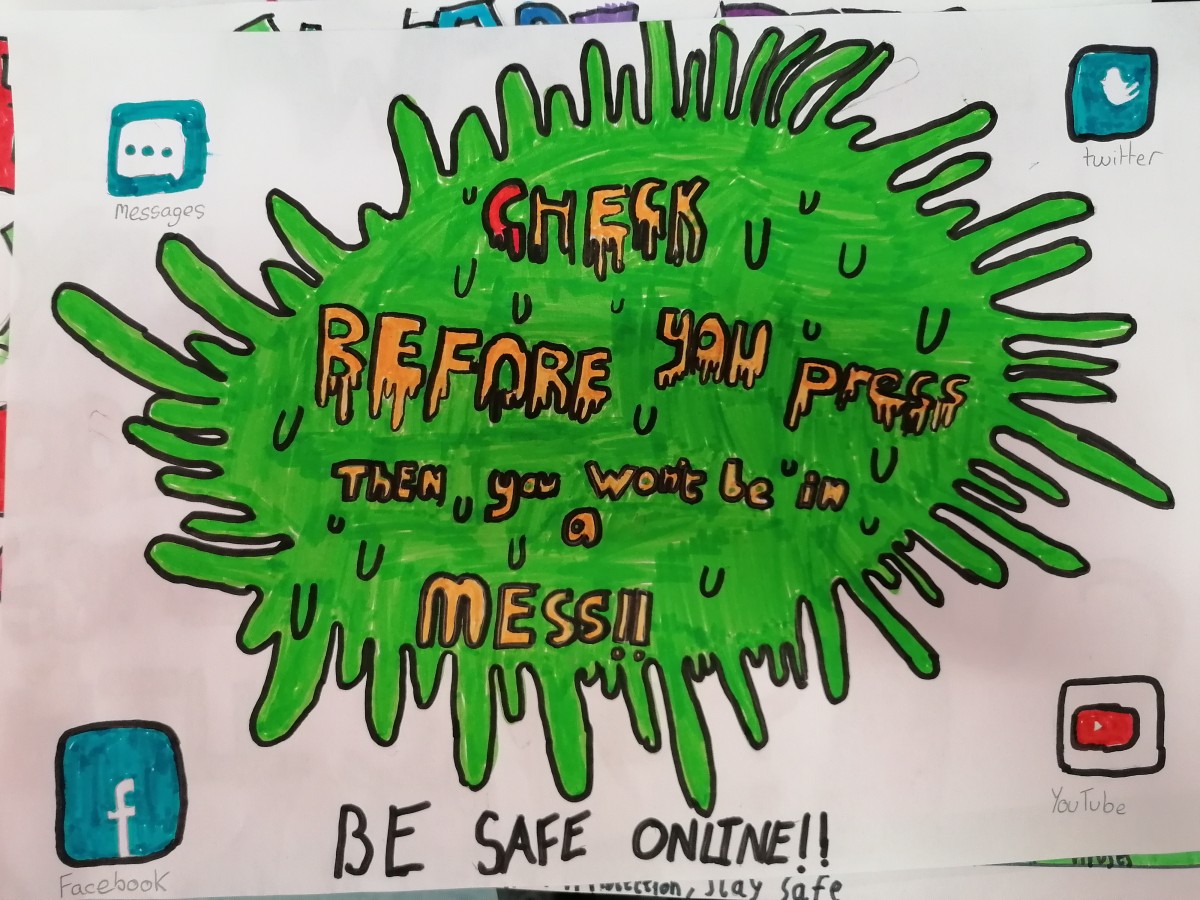 twitter
Messages
CHECK
BEFORE YOU press
ThEN you won't be in
a
MESS!!
f
YouTube
BE SAFE ONLINE!!
Facebook
stay safe